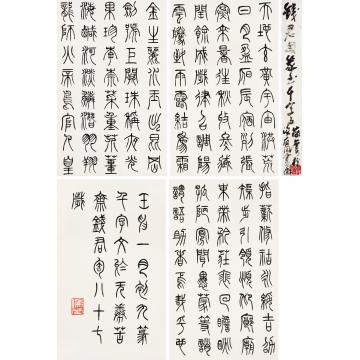 錢君匋篆書千字文
天地玄黃宇宙洪荒
日月盈昃辰宿列張
寒來暑往秋收冬藏
閏餘成歲律呂調陽
雲騰致雨露結爲霜
金生麗水玉出崑岡
劍號巨闕珠稱夜光
果珍李柰菜重芥薑
海鹹河淡鱗潛羽翔
龍師火帝鳥官人皇
指薪修祜永綏吉劭
矩步引領俯仰廊廟
束帶矜莊徘徊瞻眺
孤陋寡聞愚蒙等誚
謂語助者焉哉乎也
壬申一月初九篆
千字文於无倦苦
齋錢君匋八十七
歲